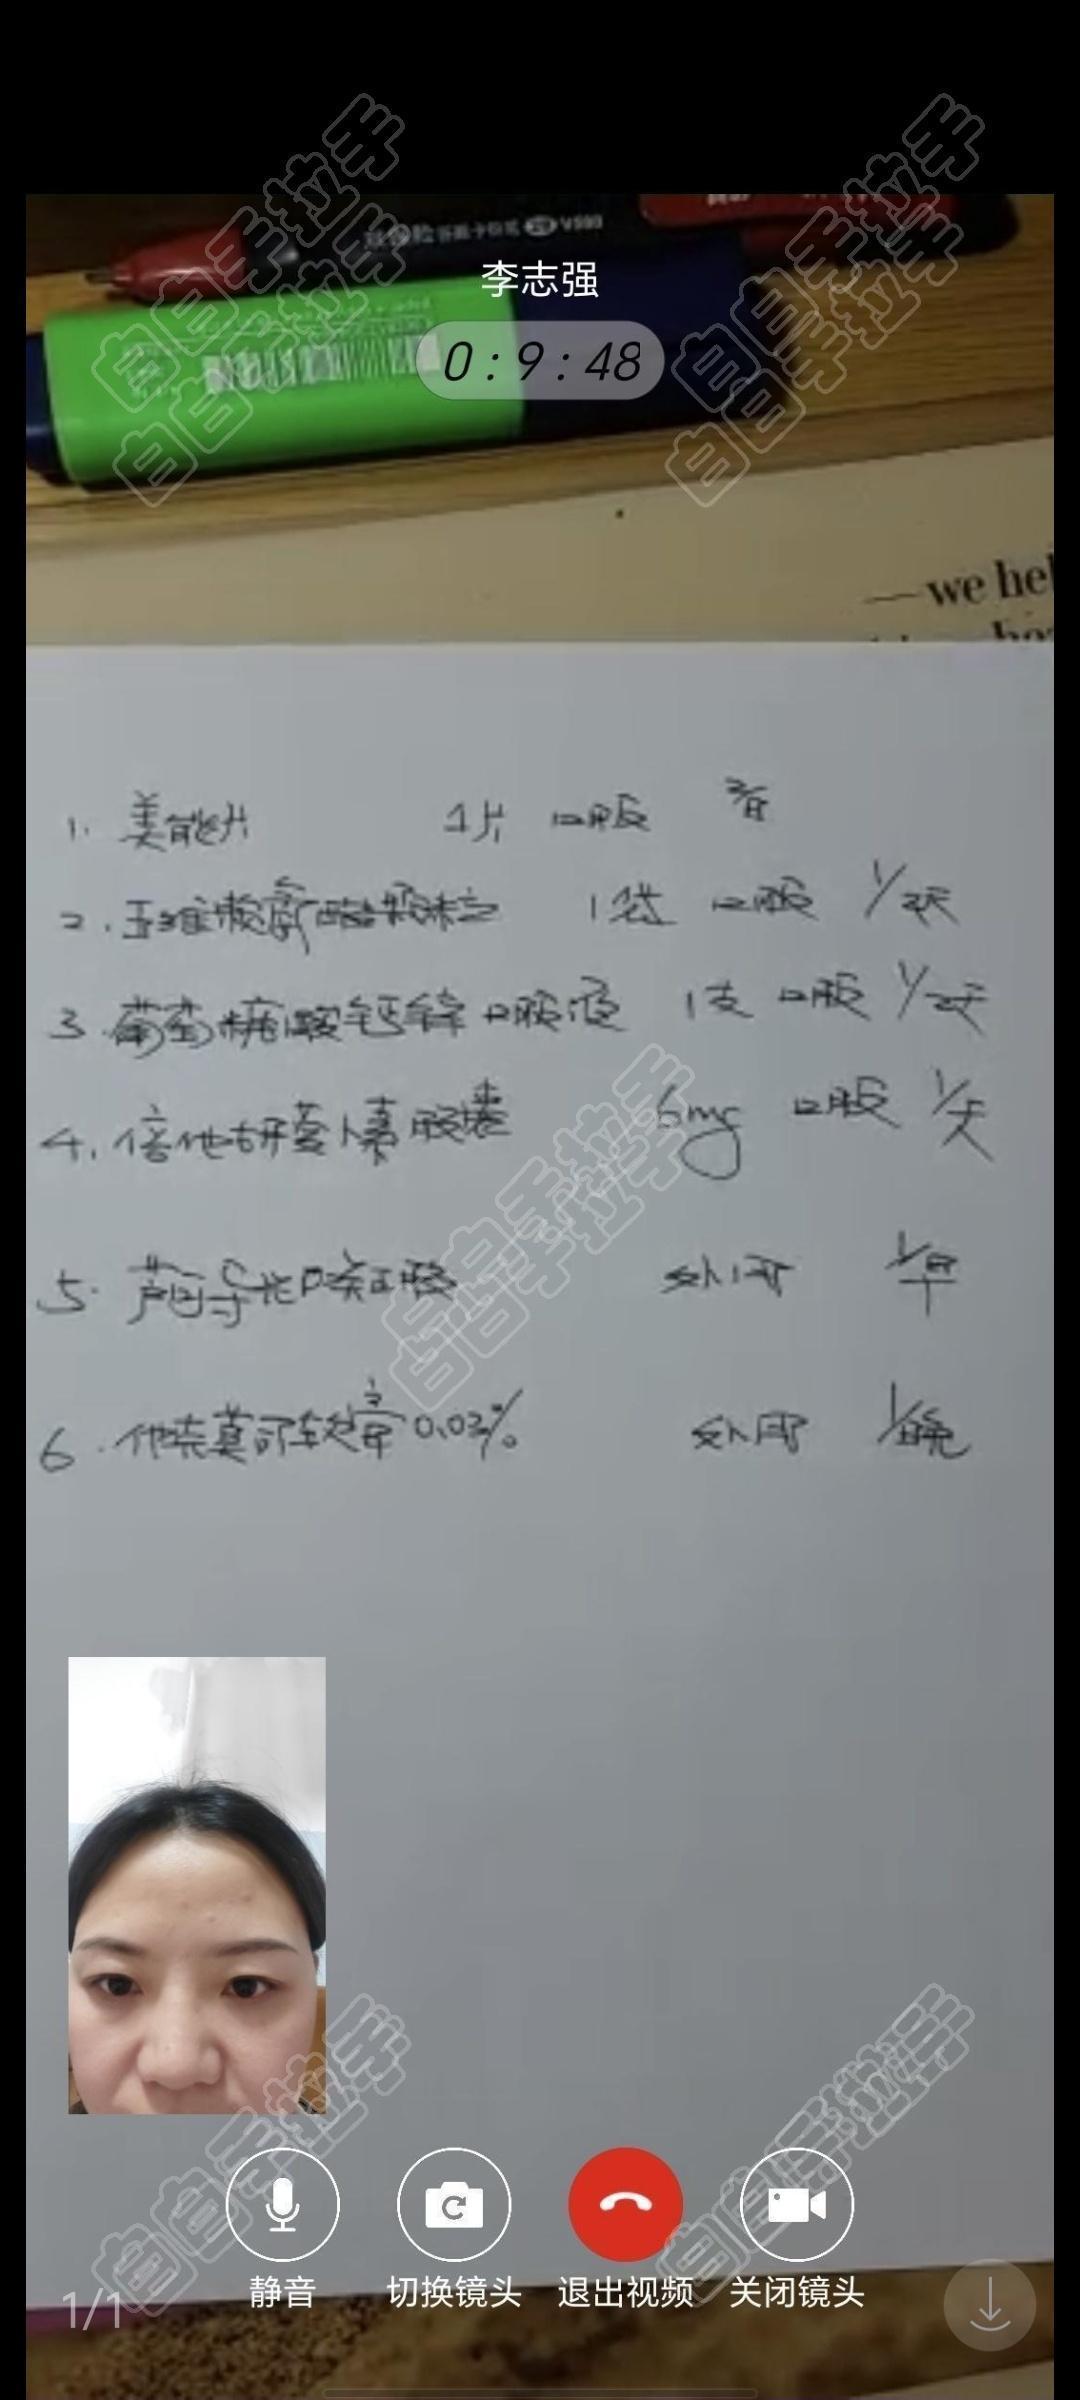 李志强
0:9:48
V990
— we hel
1. 美能片 1片 口服 2/日
2. 玉维颗 颗粒 1袋 口服 1/2天
3. 葡萄糖酸钙锌口服液 1支 口服 1/2天
4. 倍他胡萝卜素胶囊 6mg 口服 1/天
5. 外用 1/早
6. 他克莫司软膏 0.03% 外用 1/晚
白白手拉手
静音 切换镜头 退出视频 关闭镜头
1/1